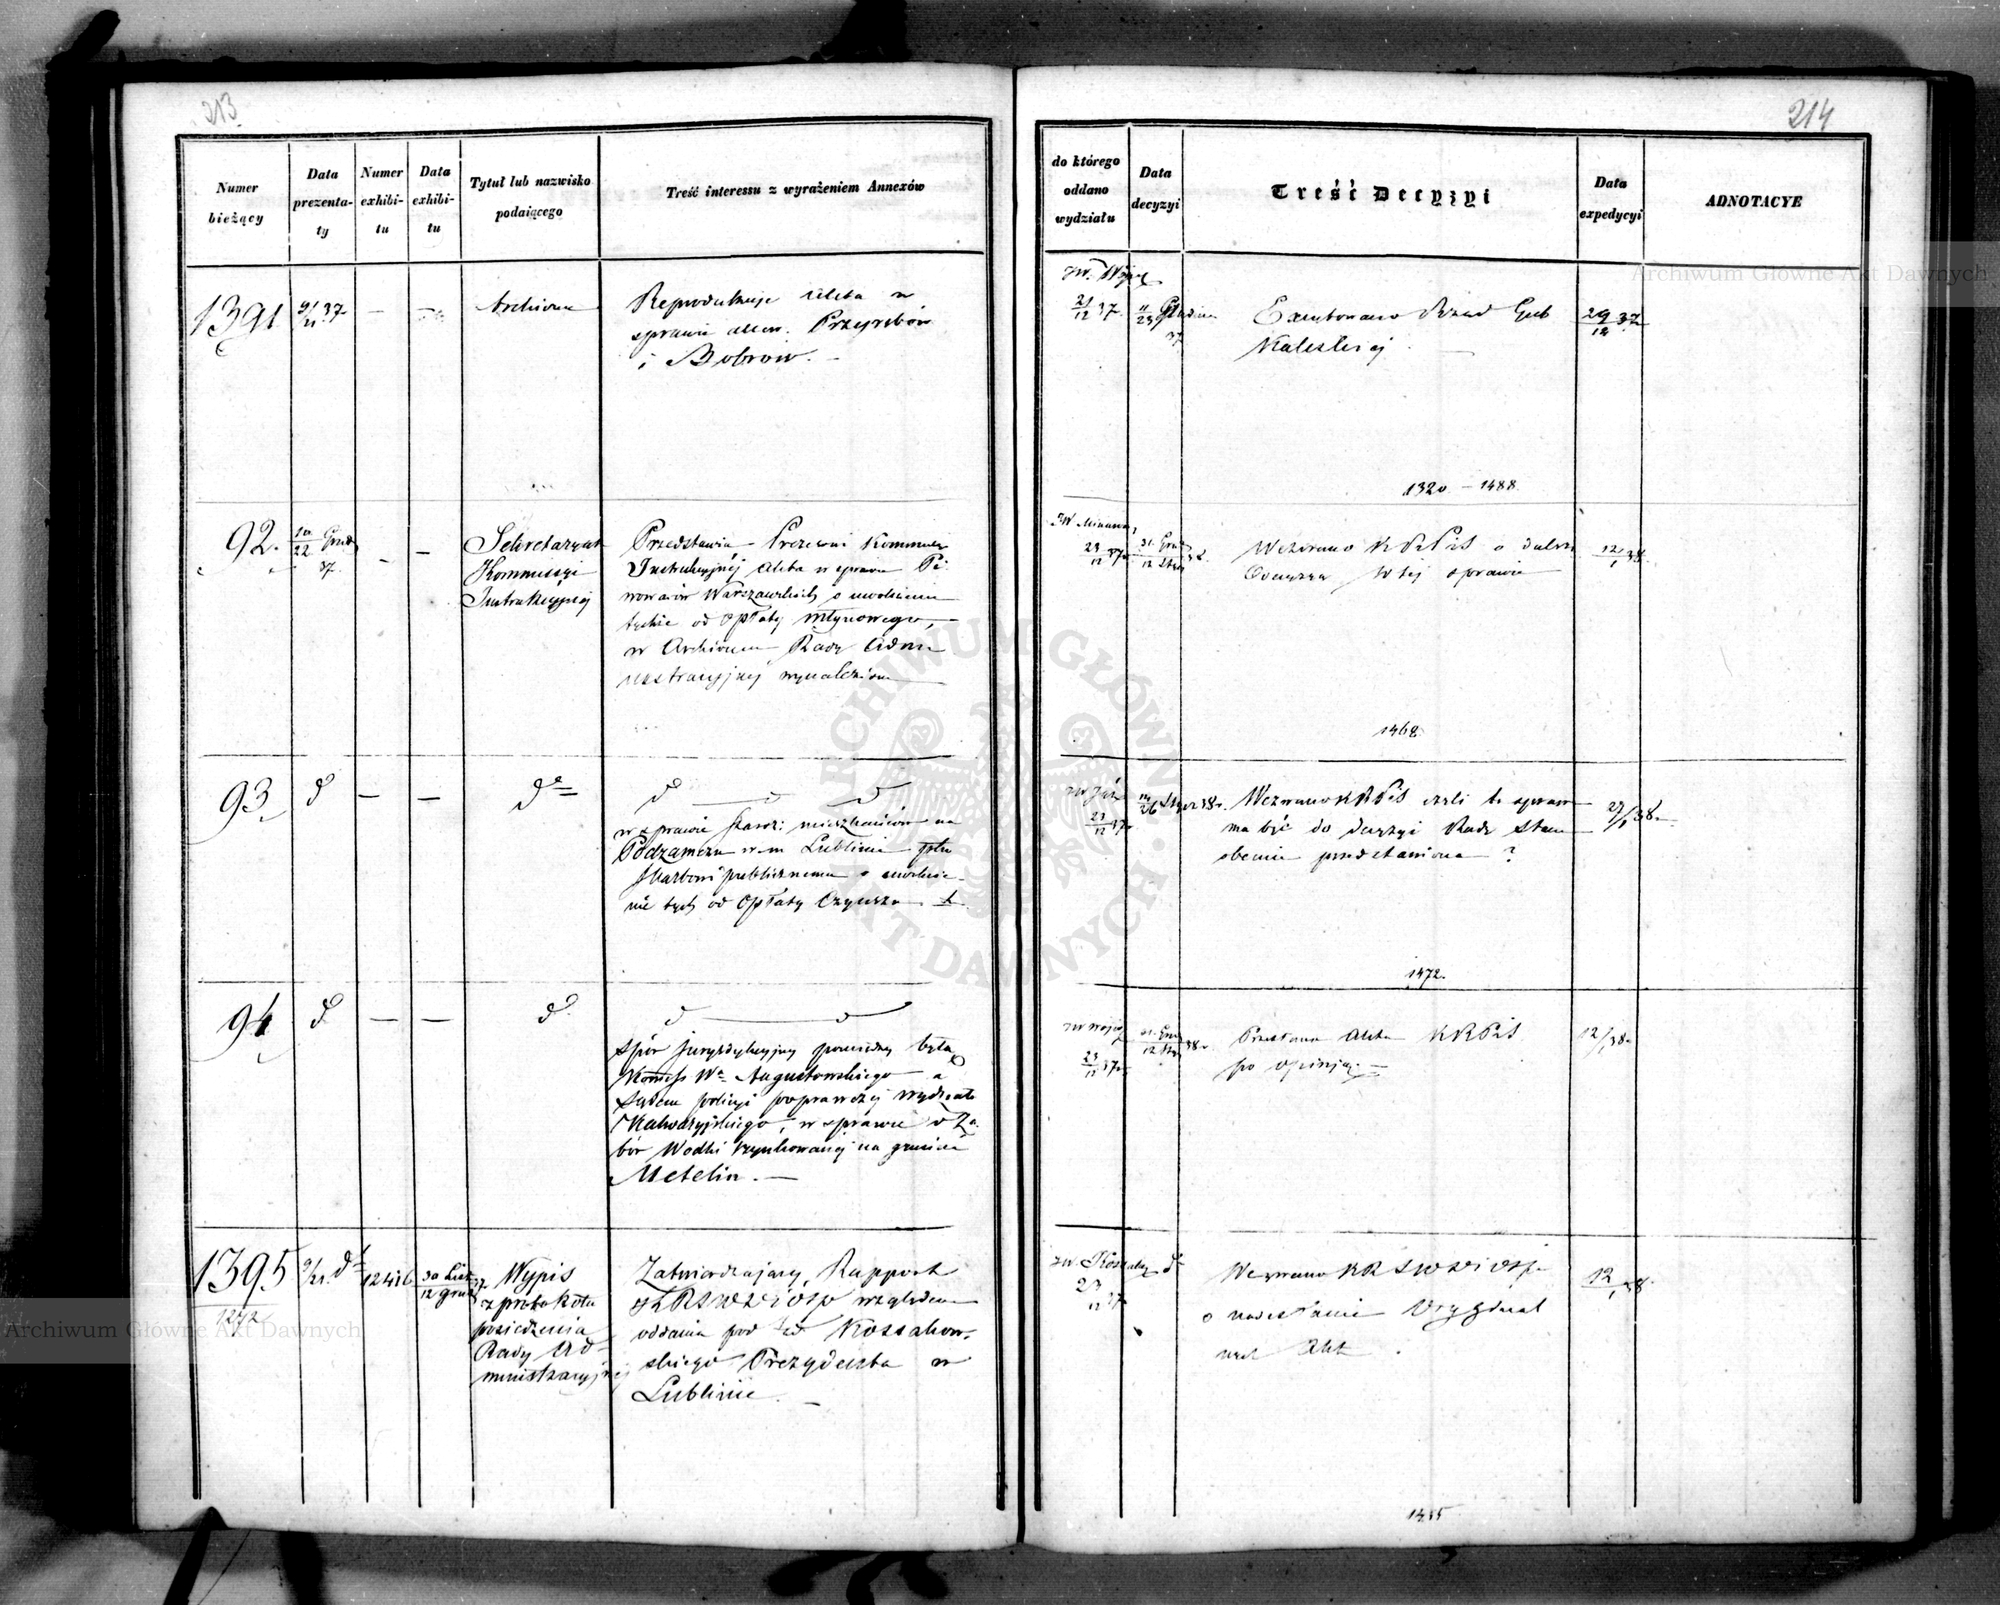 213
Numer bieżący
Data prezentaty
Numer exhibitu
Data exhibitu
Tytuł lub nazwisko podaiącego
Treść interessu z wyrażeniem Annexów
1391
9/21 37
—
Archiwum
Reprodukuje Akta w
sprawie
i Bobrow. —
92.
10/22 Grud
37.
—
—
Sekretaryat
Kommissyi
Instrukcyjnej
Przedstawia Prezesowi Kommissyi
Instrukcyjnej Akta w sprawie Pi
wowarów Warszawskich o uwolnienie
tychże od opłaty młynowego, —
w Archiwum Rady Admi
nistracyjnej wynalezione
93
d
—
—
d
w sprawie Staroz: mieszkańców na
Podzamczu w m Lublinie
Skarbowi publicznemu o uwolnie-
nie tych od opłaty Czynszu
94
d
—
—
d
spór juryzdykcyjny pomiędzy byłą
Kommiss Wa Augustowskiego a
Sądem policyi poprawczej Wydziału
Kalwaryjskiego, w sprawie o Za-
bór Wodki szynkowanej na gruncie
Metelin. —
1395
1272
9/21
12416
30 List
12 grud
Wypis
z protokołu
posiedzenia
Rady Ad-
ministracyjnej
Zatwierdzający, Rapport
KRSWD i OP względem
oddania pod Sąd Kossakow-
skiego Prezydenta w
Lublinie. —
214
do którego oddano wydziału
Data decyzyi
Treść Decyzyi
Data expedycyi
ADNOTACYE
21/12 37.
11/23 Grudnia
37
Rząd Gub
Kaliskiej.
29/12 37
1320 — 1488.
23/12 37
31 Grud
12 Stycz
38
Wezwano KRPiS o dalszą
w tej sprawie
12/1 38
1462.
23/12 37
14/26 Stycz 38
Wezwano KRPiS czyli ta sprawa
ma być do decyzyi Rady Stanu
obecnie przedstawiona ?
27/1 38
1472.
23/12 37
31 Grud
12 Stycz
38
Przesłano Akta KRPiS
po opinją. —
12/1 38
23/12 37
Wezwano KRSWD i OP
o nadesłanie Oryginal
nych Akt.
12/1 38
1455
Archiwum Główne Akt Dawnych
Archiwum Główne Akt Dawnych
ARCHIWUM GŁÓWNE AKT DAWNYCH